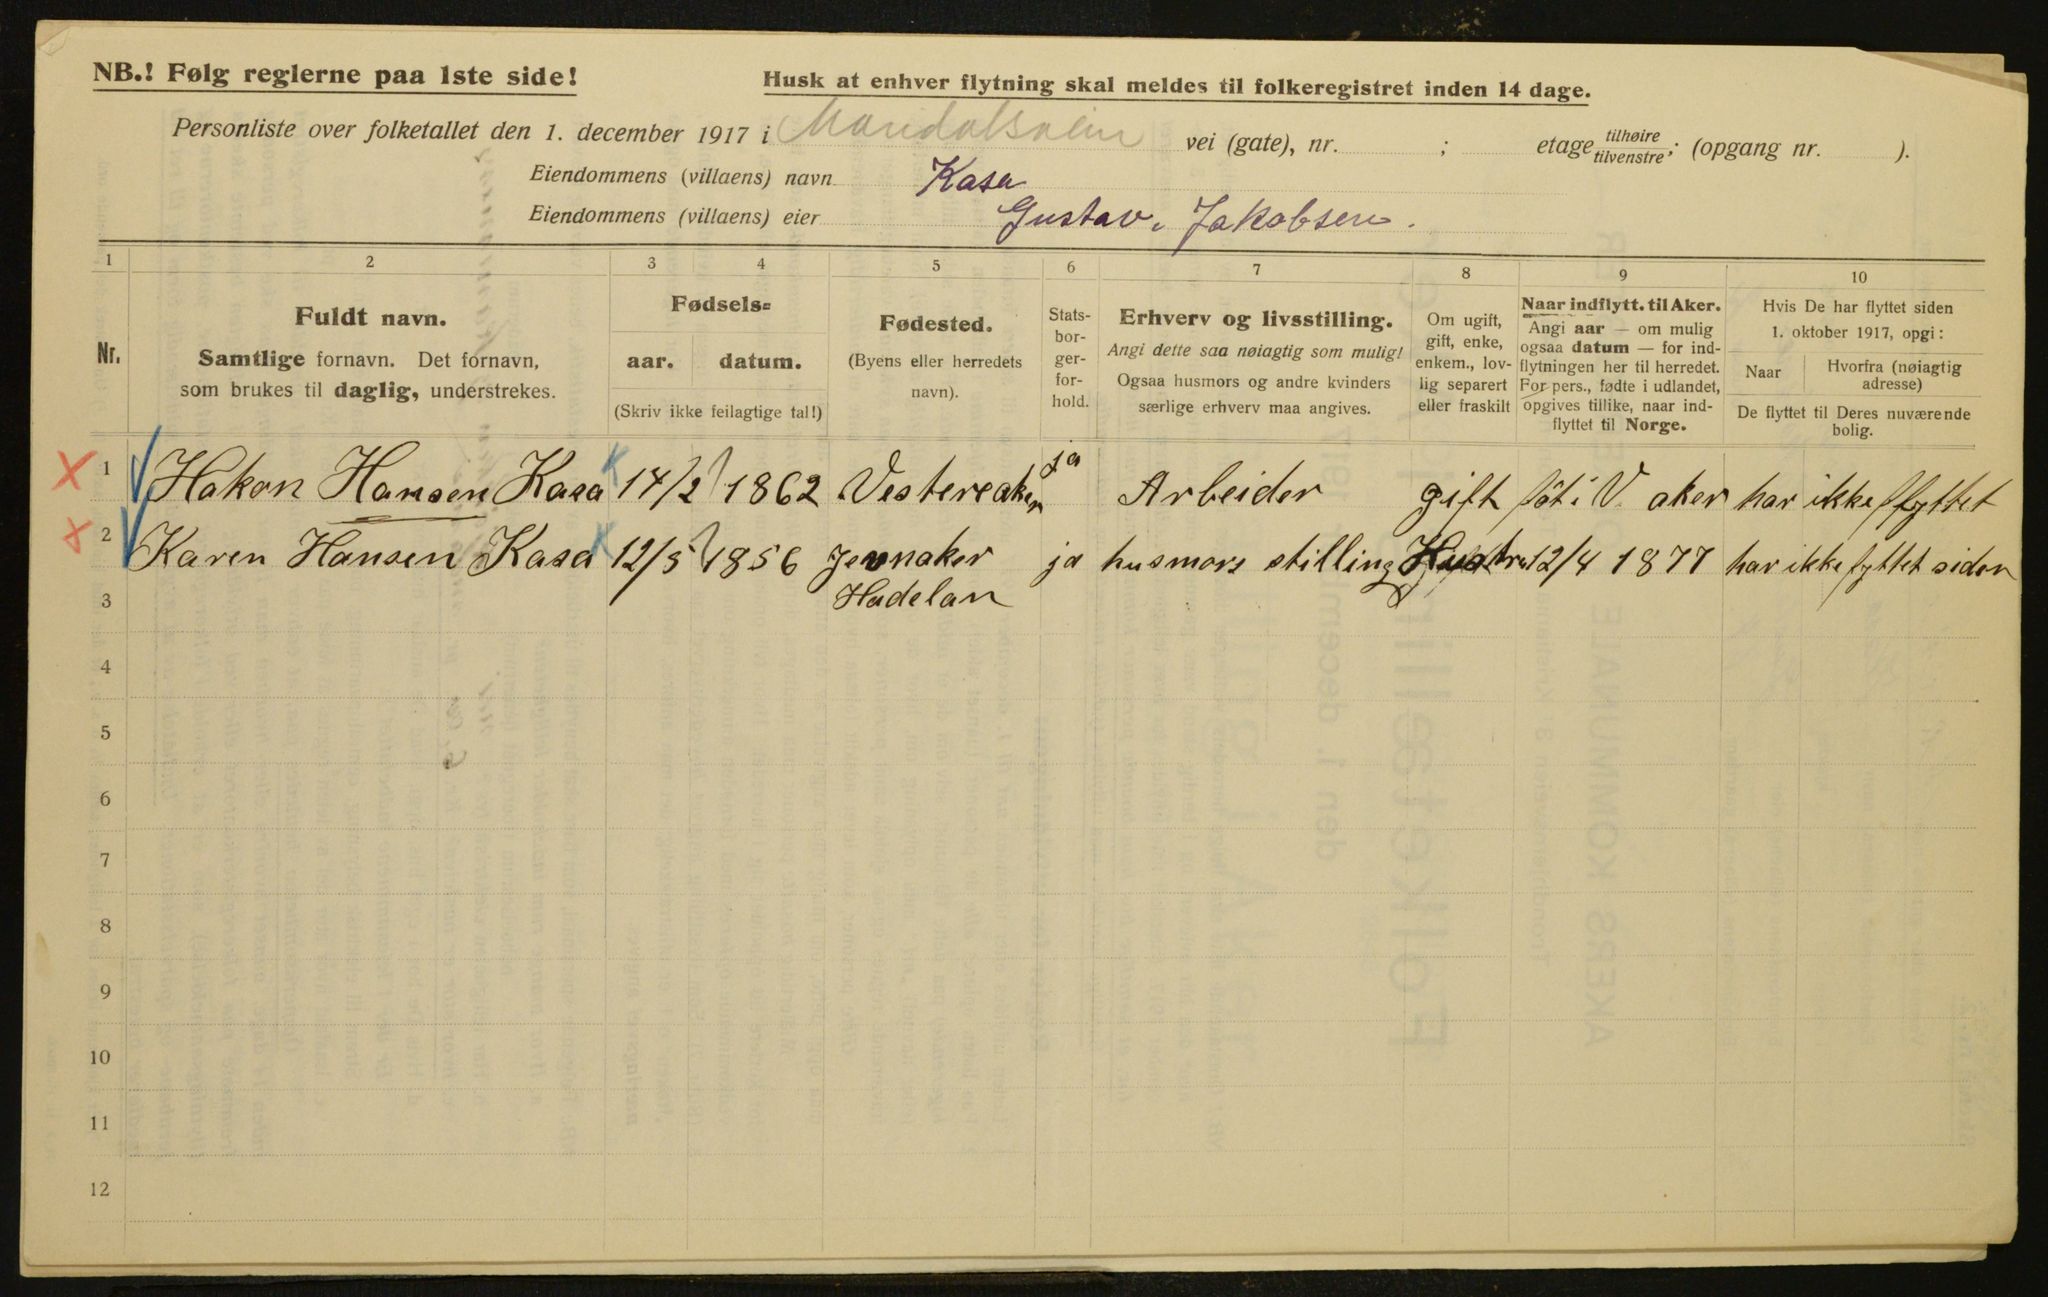 NB.! Følg reglerne paa 1ste side!
Husk at enhver flytning skal meldes til folkeregistret inden 14 dage.
Personliste over folketallet den 1. december 1917 i Maridalsveien vei (gate), nr. ; etage tilhøire/tilvenstre; (opgang nr. ).
Eiendommens (villaens) navn Kasa
Eiendommens (villaens) eier Gustav. Jakobsen.
1 2 3 4 5 6 7 8 9 10
Nr.
Fuldt navn.
Samtlige fornavn. Det fornavn,
som brukes til daglig, understrekes.
Fødsels-
aar. datum.
(Skriv ikke feilagtige tal!)
Fødested.
(Byens eller herredets
navn).
Stats-
bor-
ger-
for-
hold.
Erhverv og livsstilling.
Angi dette saa nøiagtig som mulig!
Ogsaa husmors og andre kvinders
særlige erhverv maa angives.
Om ugift,
gift, enke,
enkem., lov-
lig separert
eller fraskilt
Naar indflytt. til Aker.
Angi aar — om mulig
ogsaa datum — for ind-
flytningen her til herredet.
For pers., fødte i udlandet,
opgives tillike, naar ind-
flyttet til Norge.
Hvis De har flyttet siden
1. oktober 1917, opgi:
Naar
Hvorfra (nøiagtig
adresse)
De flyttet til Deres nuværende
bolig.
1 Hakon Hansen Kasa 14/2 1862 Vestereaker ja Arbeider gift föt i V. aker har ikke flyttet
2 Karen Hansen Kasa 12/5 1856 Jevnaker ja husmors stilling Hustru 12/4 1877 har ikke fyttet siden
3 Hadelan
4
5
6
7
8
9
10
11
12